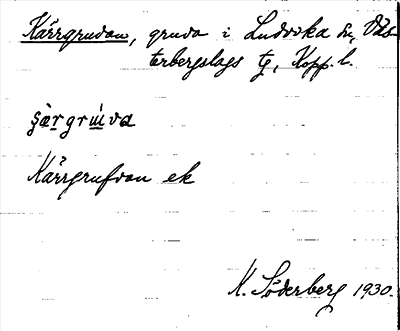 Kärrgruvan, gruva i Ludvika sn, Väs-
terbergslags tg, Kopp. l.
şärgrùva
Kärrgrufvan ek
K. Söderberg 1930.